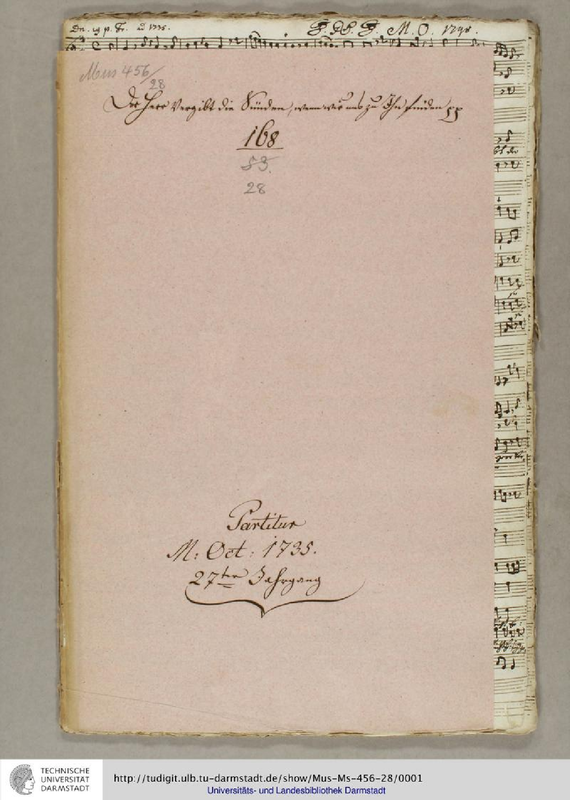 Dn. 19 p. Tr. 1735.
M. O. 1735.
Mus 456/28
Der Herr vergibt die Sünden, wenn wir uns zu Ihm finden pp
168
53.
28
Partitur
M: Oct: 1735.
27ter Jahrgang
TECHNISCHE
UNIVERSITÄT
DARMSTADT
http://tudigit.ulb.tu-darmstadt.de/show/Mus-Ms-456-28/0001
Universitäts- und Landesbibliothek Darmstadt